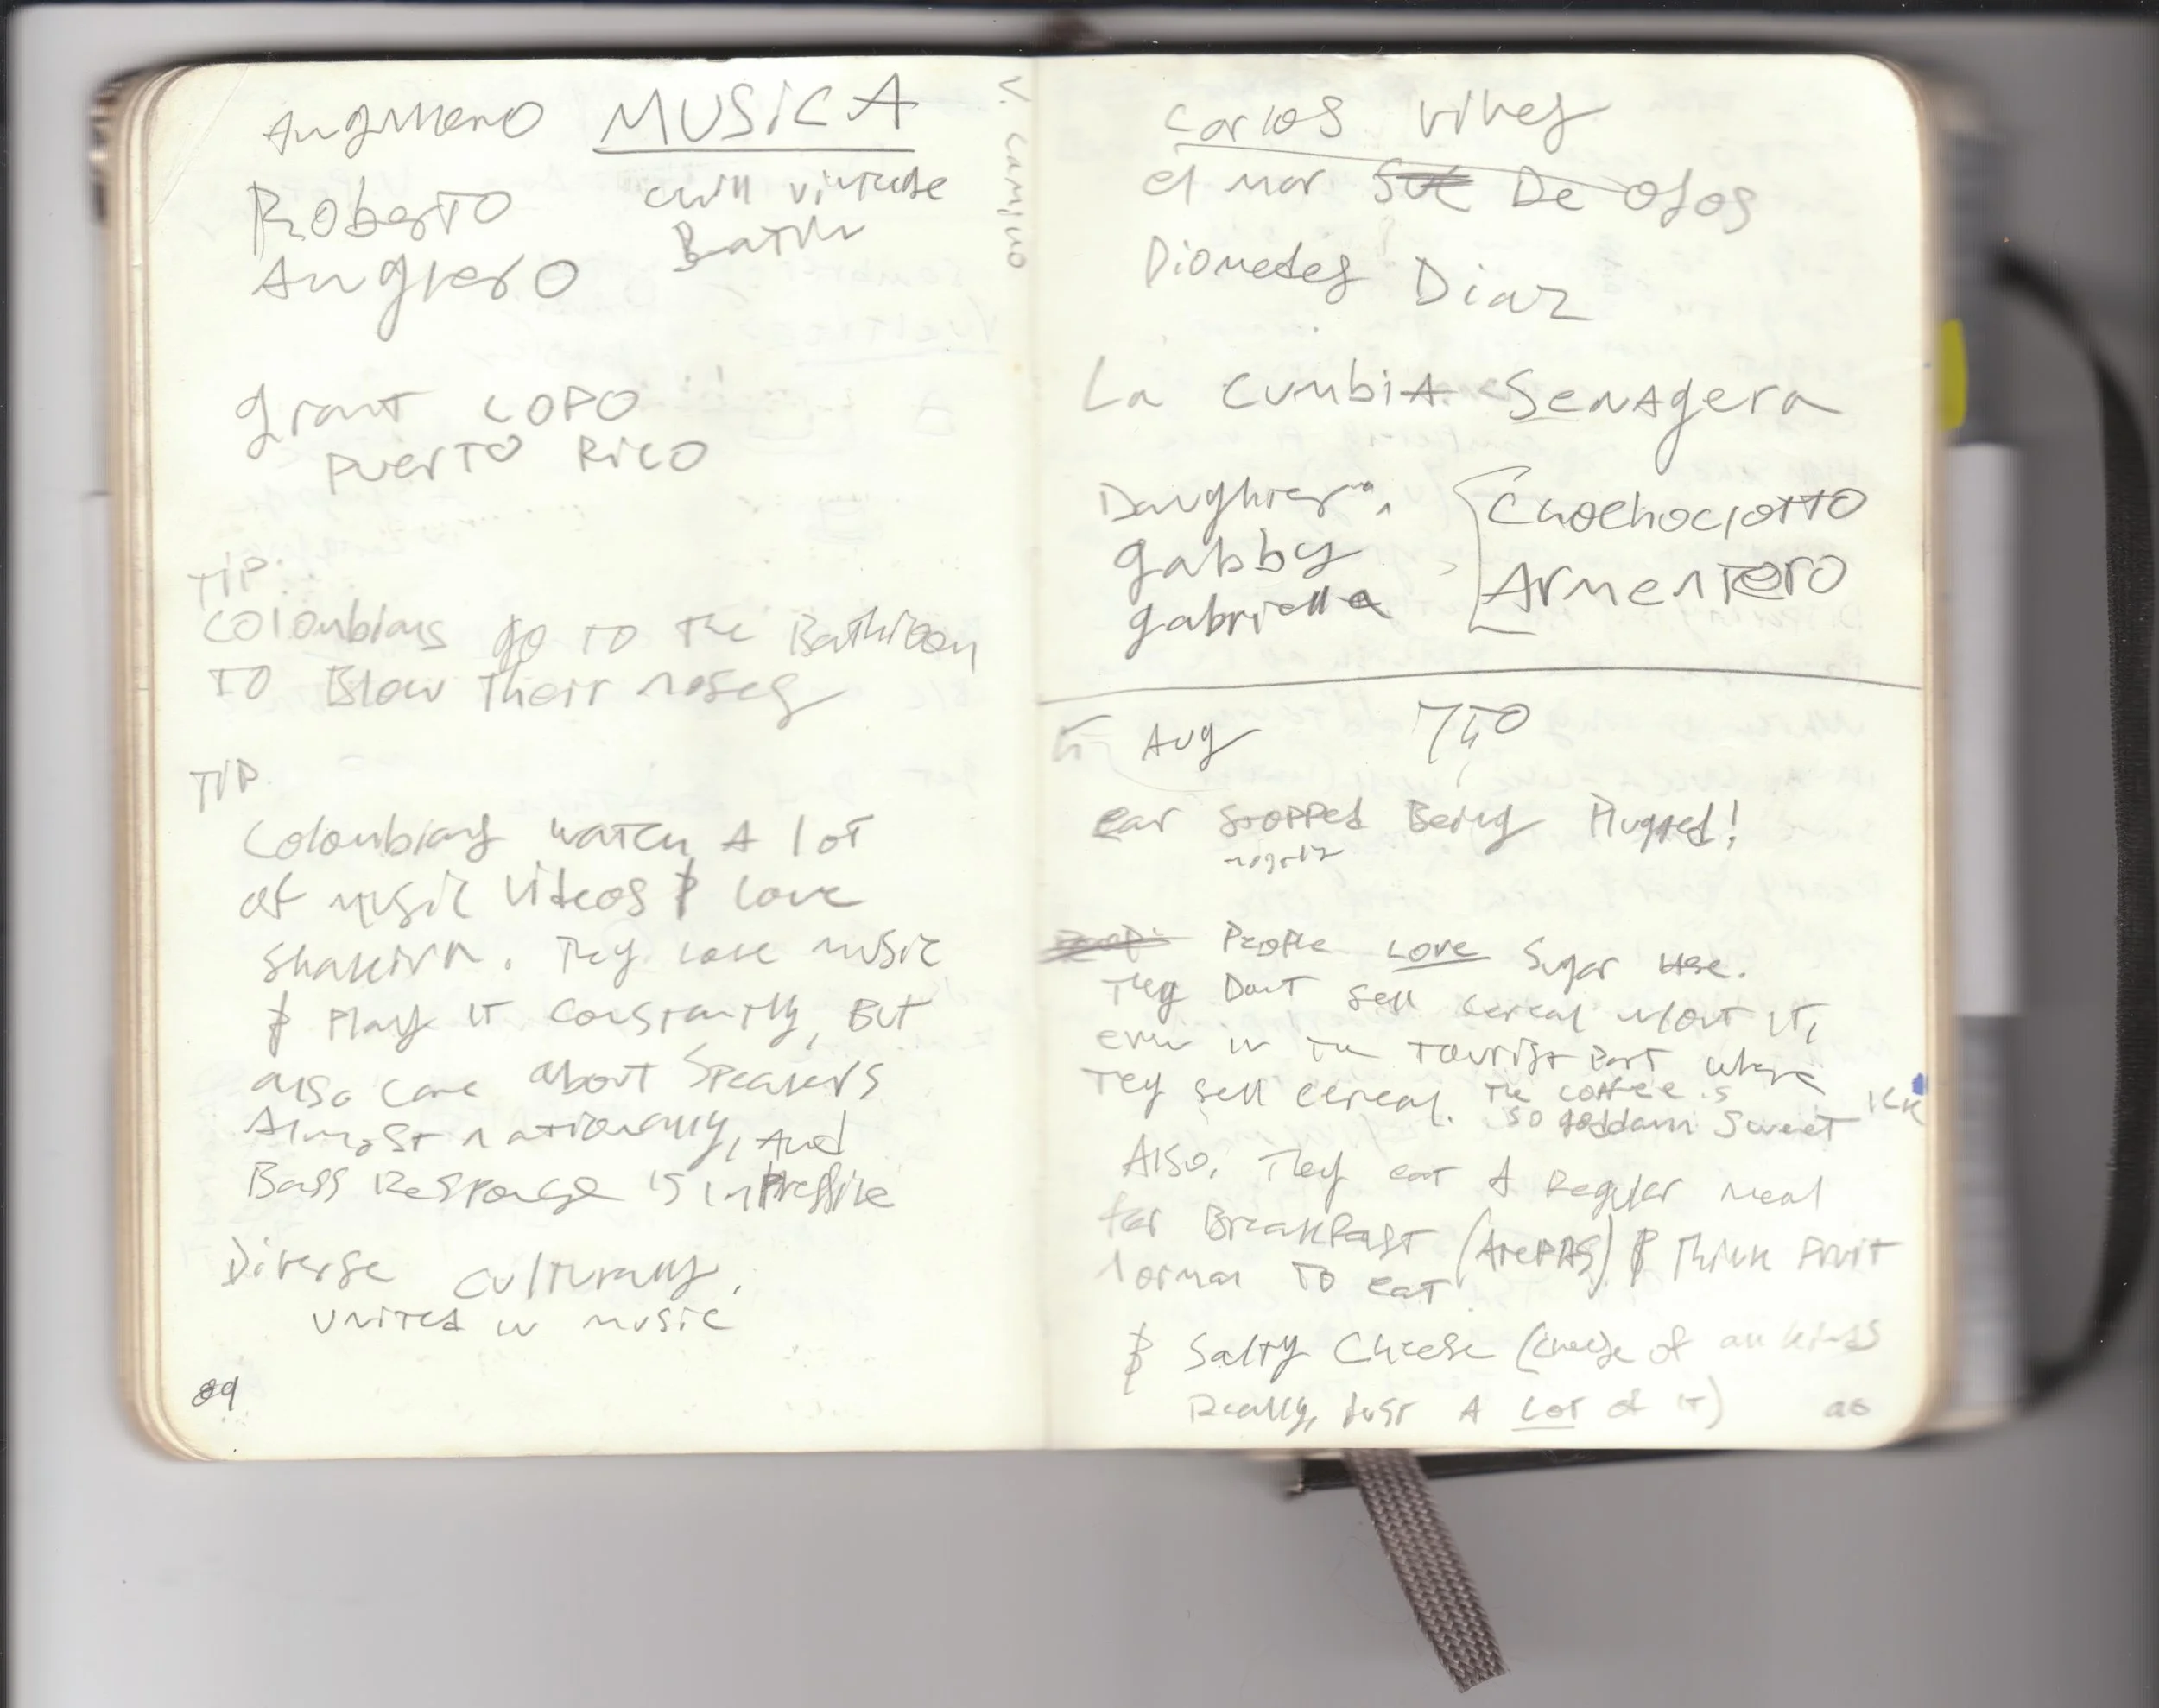 MUSICA
Roberto
Angrero
chill
grant COPO
PUERTO RICO
V. camino
TIP.
Colombians go to the Bathroom
to Blow their noses
TIP.
Colombians watch A lot
of music videos & love
Shakira. They love music
& Play it constantly, But
also care about Speakers
Almost nationally, And
Bass Response is impressive
Diverse culturally,
united in music
89
Carlos Vives
el mar De Ojos
Diomedes Diaz
La Cumbia Senagera
Daughter
gabby
gabriella
Armentero
Aug
ear stopped Being Plugged!
mostly
People LOVE Sugar Here.
They Don't sell cereal w/out it,
even in the tourist Part where
They sell cereal. The coffee is
so goddam Sweet ICK
Also, They eat A Regular meal
for Breakfast (ArePAS) & Think Fruit
normal to eat.
& Salty Cheese (cheese of all kinds
Really, Just A Lot of it)
90